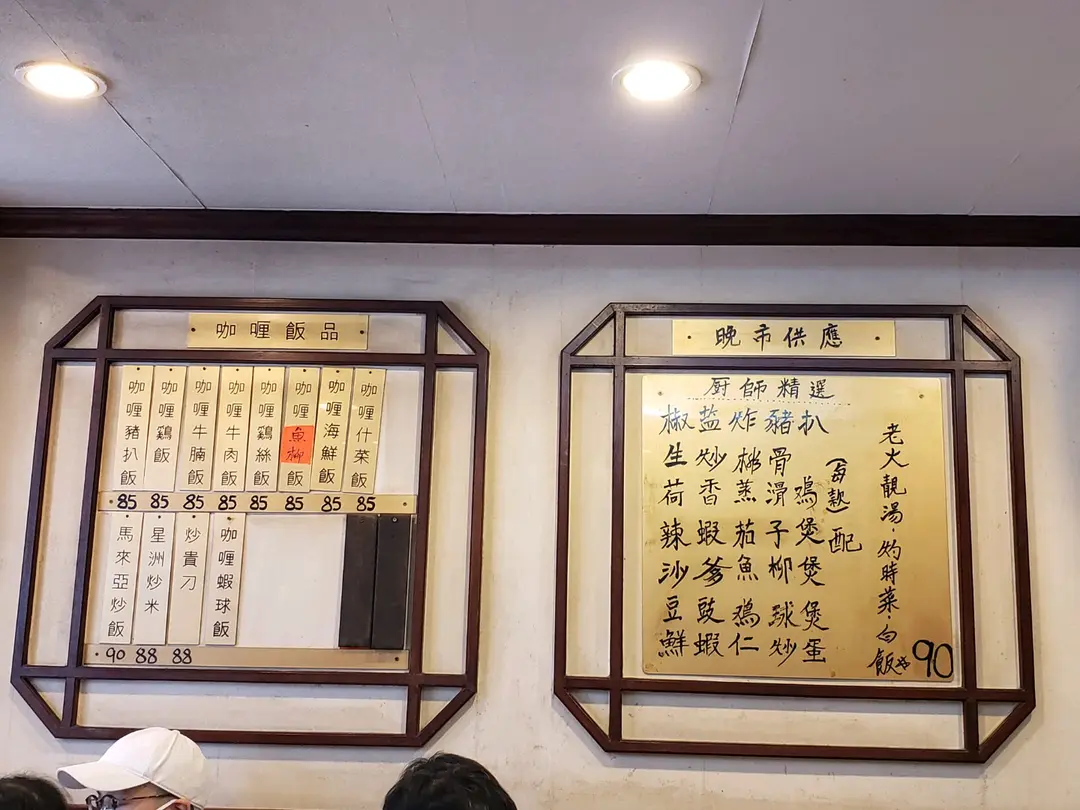 咖喱飯品
咖喱豬扒飯
咖喱鷄飯
咖喱牛腩飯
咖喱牛肉飯
咖喱鷄絲飯
咖喱魚柳飯
咖喱海鮮飯
咖喱什菜飯
85 85 85 85 85 85 85 85
馬來亞炒飯
星洲炒米
炒貴刀
咖喱蝦球飯
90 88 88
晚市供應
厨師精選
椒盐炸豬扒
生炒排骨
荷香蒸滑鸡
辣蝦茄子煲
沙爹魚柳煲
豆豉鸡球煲
鮮蝦仁炒蛋
(每款)配
老火靚湯·灼時菜·白飯
90